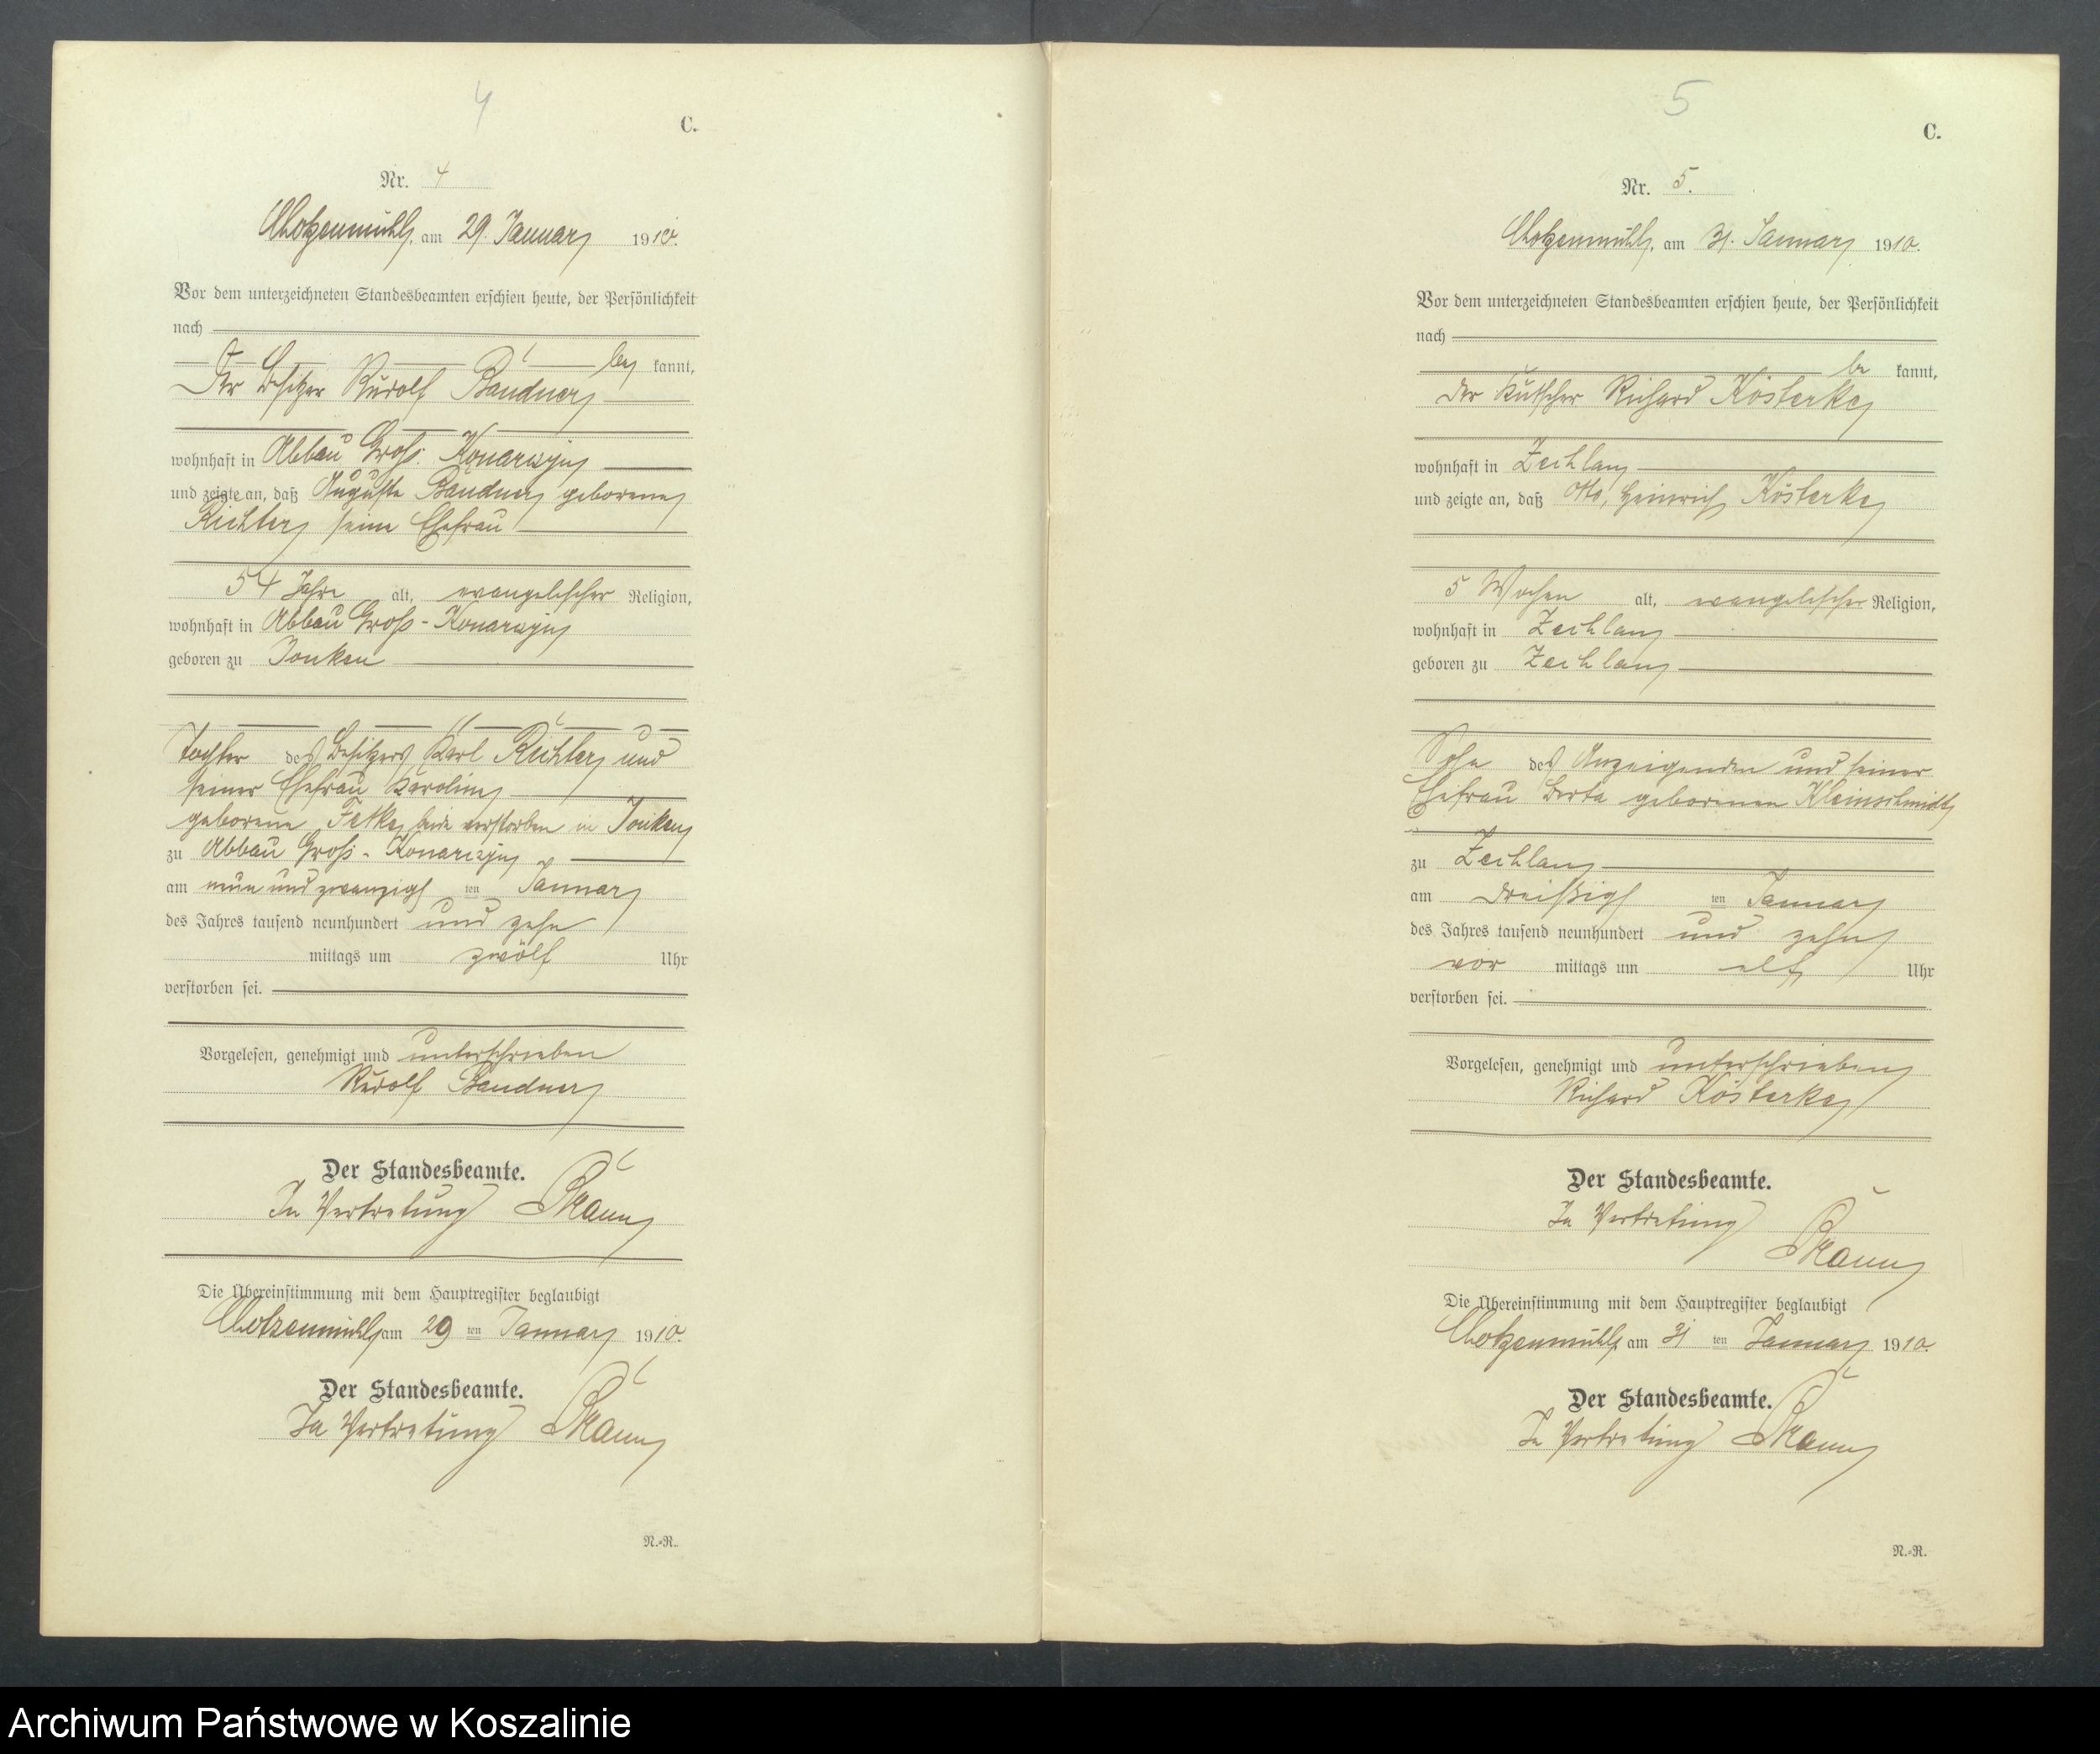 4
C.
Nr. 4
Chotzenmühl, am 29. Januar 1910.
Vor dem unterzeichneten Standesbeamten erschien heute, der Persönlichkeit
nach
be kannt,
Der Besitzer Rudolf Bandner
wohnhaft in Abbau Groß. Konarczyn
und zeigte an, daß Auguste Bandner geborene
Richter seine Ehefrau
54 Jahre alt, evangelischer Religion,
wohnhaft in Abbau Groß-Konarczyn
geboren zu
Tochter des Besitzers Karl Richter und
seiner Ehefrau Karoline
geborene beide verstorben in
zu Abbau Groß-Konarczyn
am neun und zwanzigsten Januar
des Jahres tausend neunhundert und zehn
mittags um zwölf Uhr
verstorben sei.
Vorgelesen, genehmigt und unterschrieben
Rudolf Bandner
Der Standesbeamte.
In Vertretung
Die Übereinstimmung mit dem Hauptregister beglaubigt
Chotzenmühl, am 29 ten Januar 1910.
Der Standesbeamte.
In Vertretung
N.-R.
5
C.
Nr. 5.
Chotzenmühl, am 31. Januar 1910.
Vor dem unterzeichneten Standesbeamten erschien heute, der Persönlichkeit
nach
be kannt,
der Kutscher Richard Kösterke
wohnhaft in Zechlau
und zeigte an, daß Otto, Heinrich Kösterke
5 Wochen alt, evangelischer Religion,
wohnhaft in Zechlau
geboren zu Zechlau
Sohn des Anzeigenden und seiner
Ehefrau Berta geborenen Kleinschmidt
zu Zechlau
am dreißigsten Januar
des Jahres tausend neunhundert und zehn
vor mittags um elf Uhr
verstorben sei.
Vorgelesen, genehmigt und unterschrieben
Richard Kösterke
Der Standesbeamte.
In Vertretung
Die Übereinstimmung mit dem Hauptregister beglaubigt
Chotzenmühl, am 31 ten Januar 1910.
Der Standesbeamte.
In Vertretung
N.-R.
Archiwum Państwowe w Koszalinie